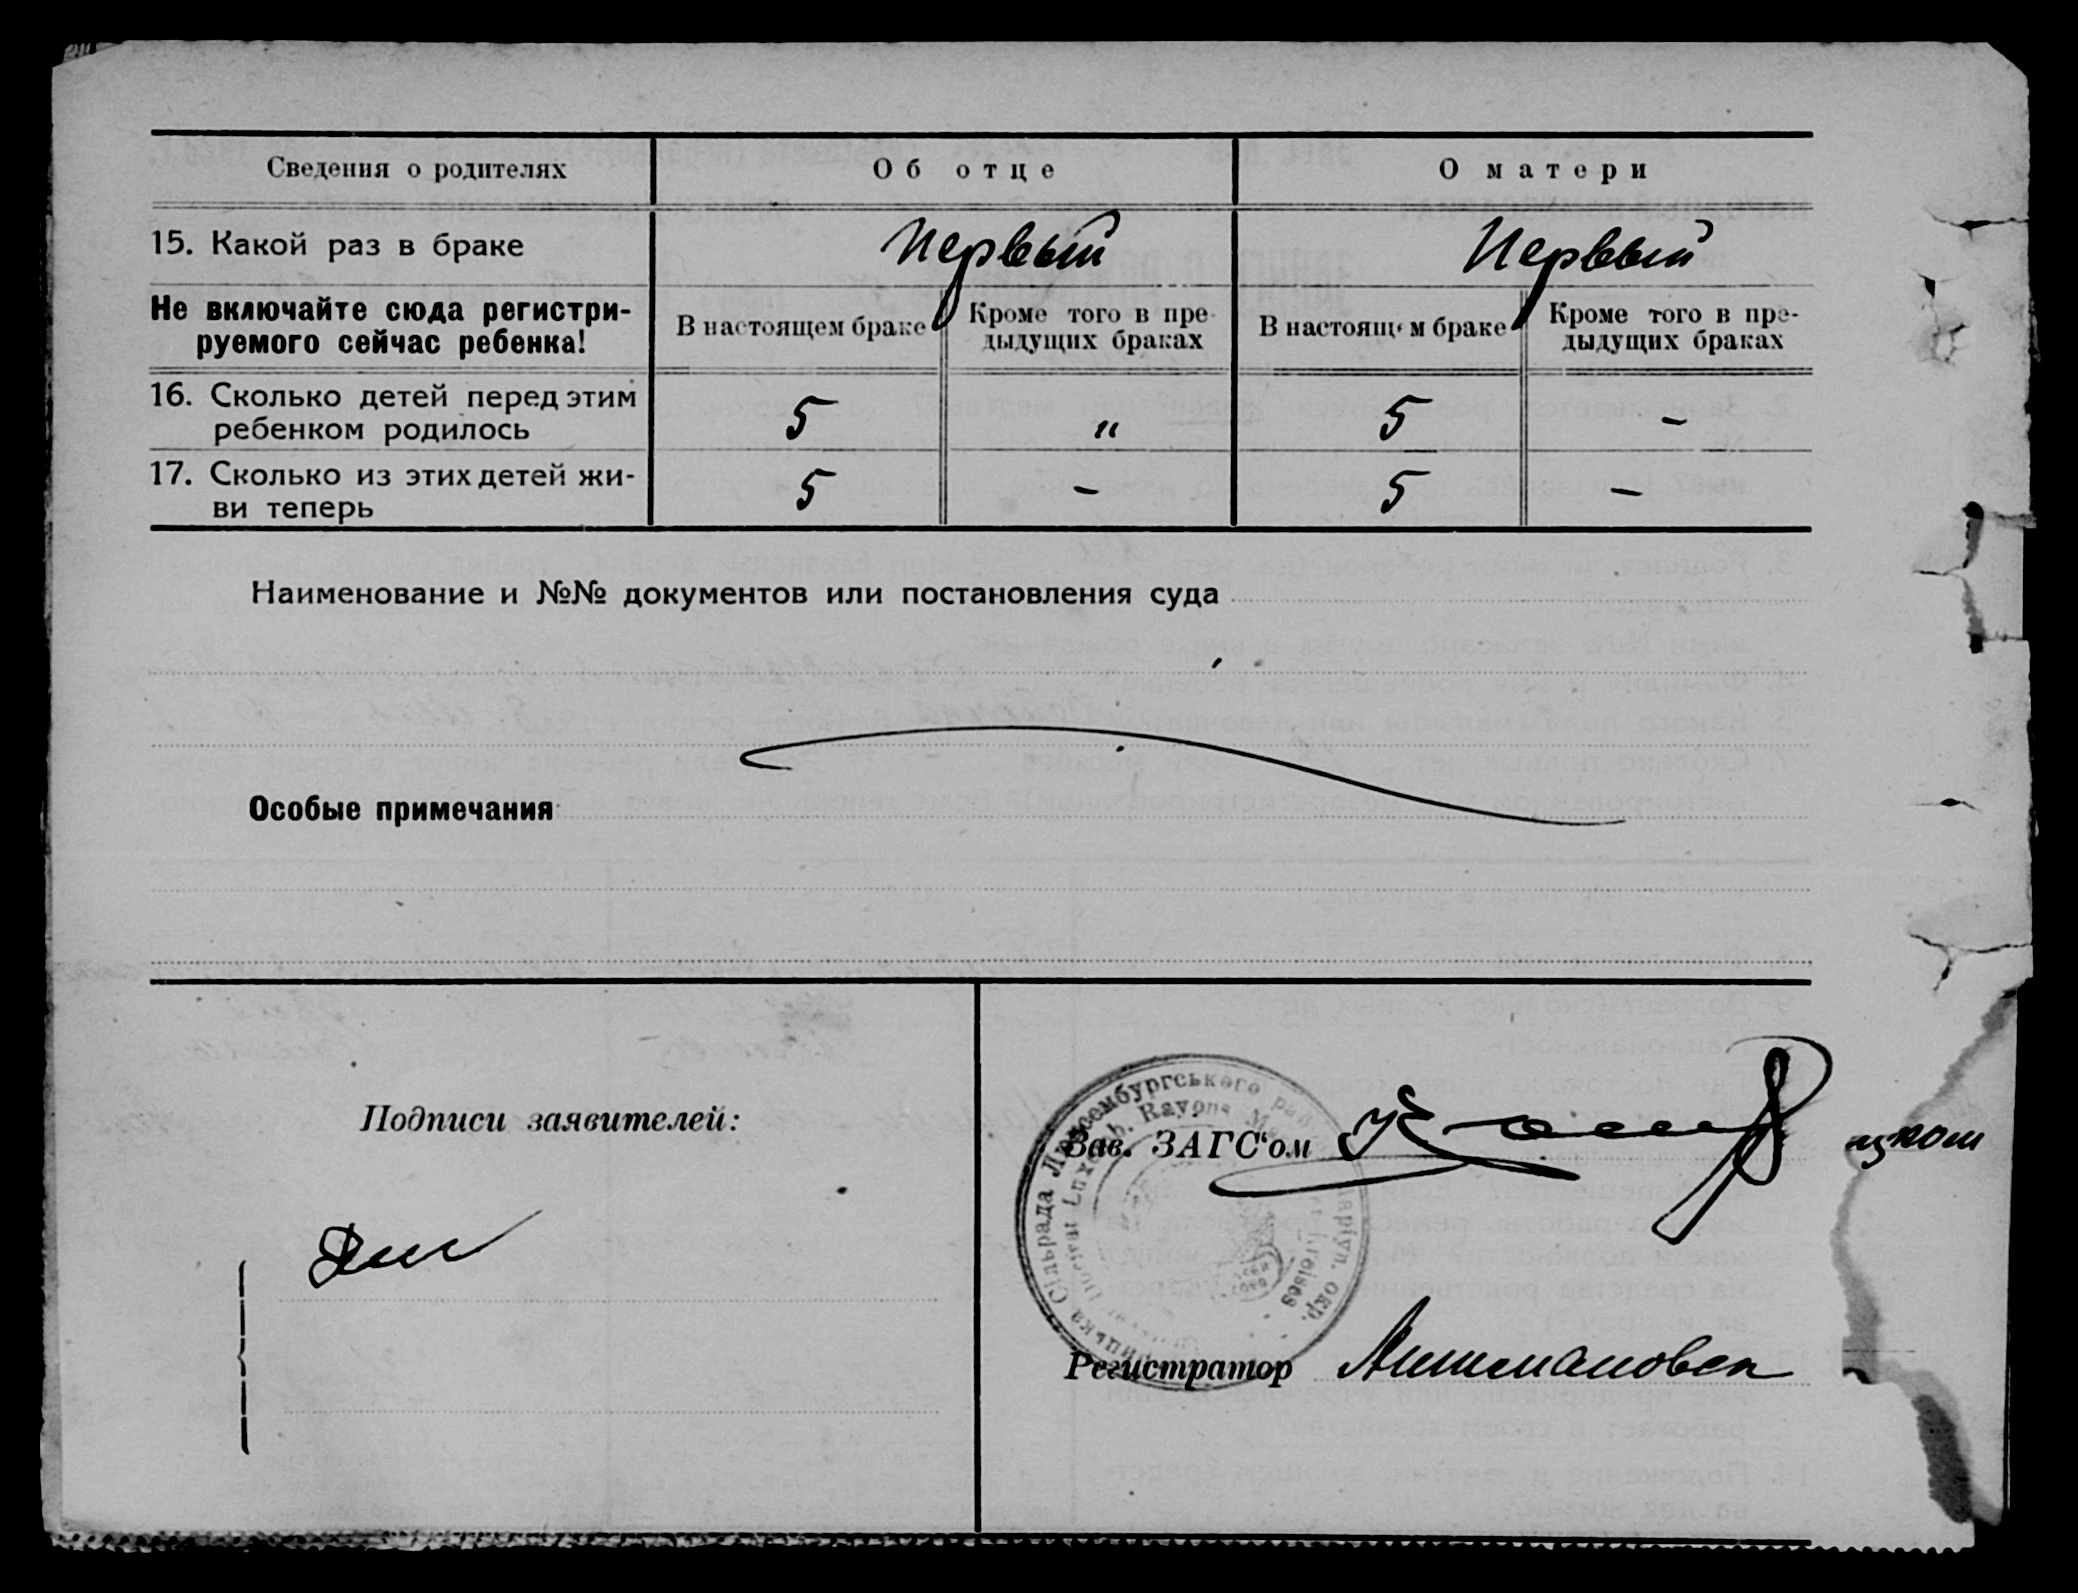 Сведения о родителях Об отце О матери
15. Какой раз в браке Первый Первый
Не включайте сюда регистри-
руемого сейчас ребенка!
В настоящем браке Кроме того в пре-
дыдущих браках В настоящем браке Кроме того в пре-
дыдущих браках
16. Сколько детей перед этим
ребенком родилось 5 " 5 -
17. Сколько из этих детей жи-
ви теперь 5 - 5 -
Наименование и №№ документов или постановления суда
Особые примечания
Подписи заявителей:
Зав. ЗАГС'ом
Регистратор
Сільрада Люксембургського рай
Маріуп. окр.
Rayons